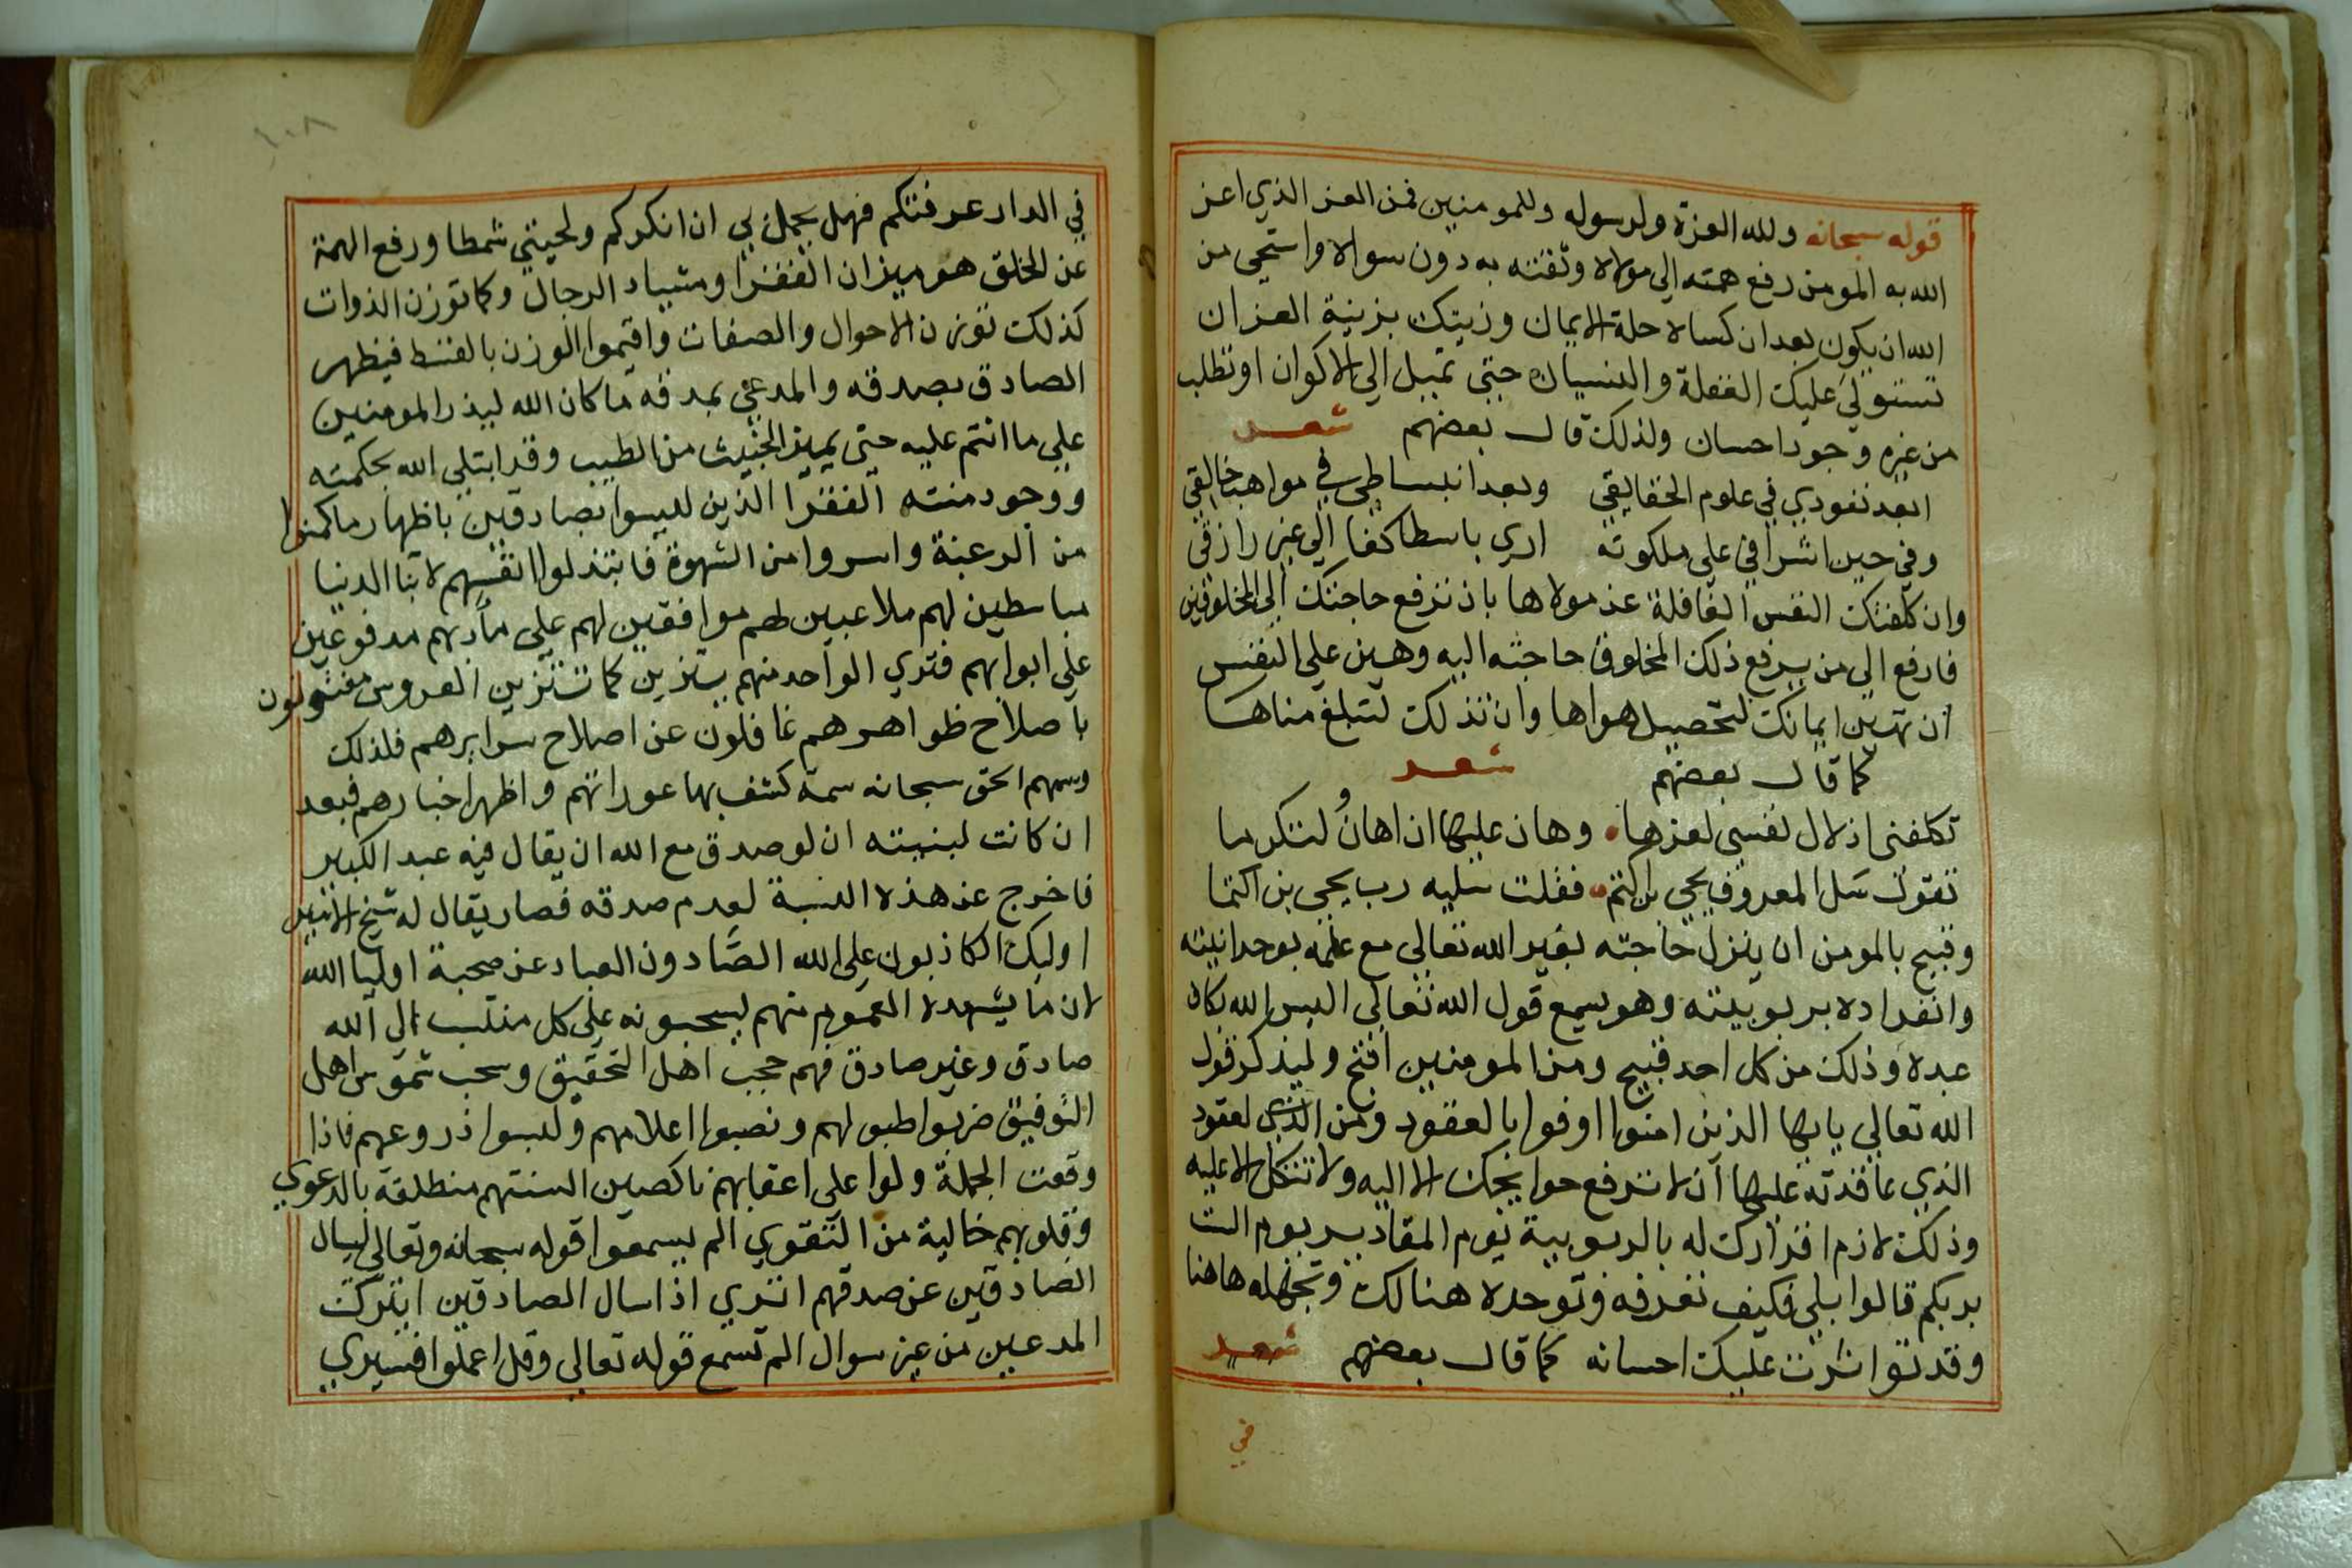 قوله سبحانه ولله العزة ولرسوله وللمومنين فمن العز الذي اعز
الله به المومن رفع همته الى مولاه وثقته به دون سواه واستحي من
الله ان يكون بعد ان كساه حلة الايمان وزينك بزينة العز ان
تستولي عليك الغفلة والنسيان حتى تميل الي الاكوان او تطلب
من غيره وجود احسان ولذلك قال بعضهم شعر
ابعد نفوذي في علوم الحقايقي وبعد انبساطي في مواهب خالقي
وفي حين اشرافي على ملكوته اري باسطا كفا الي غير رازقي
وان كلفتك النفس الغافلة عن مولاها بان ترفع حاجتك الي المخلوقين
فارفع الي من يرفع ذلك المخلوق حاجته اليه وهين على النفس
ان تهين ايمانك لتحصيل هواها وان تذلك لتبلغ مناها
كما قال بعضهم شعر
تكلفني اذلال نفسي لعزها وهان عليها ان اهان لتكرما
تقول سل المعروف يحي بن اكثم فقلت سليه رب يحيى بن اكثما
وقبيح بالمومن ان ينزل حاجته بغير الله تعالي مع علمه بوحدانيته
وانفراده بربوبيته وهو يسمع قول الله تعالى اليس الله بكاف
عبده وذلك من كل احد قبيح ومن المومنين اقبح وليذكر قول
الله تعالي يايها الذين امنوا اوفوا بالعقود ومن الذي لعقود
الذي عاقدته عليها ان لا ترفع حوايجك الا اليه ولا تتكل الا عليه
وذلك لازم اقرارك له بالربوبية يوم المقادير يوم الست
بربكم قالوا بلي فكيف تعرفه وتوحده هنالك وتجهله هاهنا
وقد تواترت عليك احسانه كما قال بعضهم شعر
في
في الدار عرفتكم فهل يجمل بي ان انكركم ولحيتي شمطا ورفع الهمة
عن الخلق هو ميزان الفقرا ومسبار الرجال وكما توزن الذوات
كذلك توزن الاحوال والصفات واقيموا الوزن بالقسط فيظهر
الصادق بصدقه والمدعي بمدقه ما كان الله ليذر المومنين
علي ما انتم عليه حتى يميز الخبيث من الطيب وقد ابتلي الله بحكمته
ووجود منته الفقرا الذين ليسوا بصادقين باظهار ما كمنوا
من الرغبة واسروا من الشهوة فابتذلوا انفسهم لابنا الدنيا
مباسطين لهم ملاعبين لهم موافقين لهم على مأربهم مدفوعين
علي ابوابهم فتري الواحد منهم يتزين كما تتزين العروس مفتونون
باصلاح ظواهرهم غافلون عن اصلاح سرايرهم فلذلك
وسمهم الحق سبحانه سمة كشف بها عوراتهم واظهر اخبارهم فبعد
ان كانت لنسبته ان لو صدق مع الله ان يقال فيه عبد الكبير
فاخرج عن هذه النسبة لعدم صدقه فصار يقال له شيخ الامير
اوليك الكاذبون على الله الصادون العباد عن صحبة اوليا الله
لان ما يشهده العموم منهم يسحبونه على كل منتسب الى الله
صادق وغير صادق فهم حجب اهل التحقيق وسحب شموس اهل
التوفيق ضربوا طبولهم ونصبوا اعلامهم ولبسوا دروعهم فاذا
وقعت الحملة ولوا على اعقابهم ناكصين السنتهم منطلقة بالدعوي
وقلوبهم خالية من التقوي الم يسمعوا قوله سبحانه وتعالى ليسال
الصادقين عن صدقهم اتري اذا سال الصادقين ايترك
المدعين من غير سوال الم تسمع قوله تعالي وقل اعملوا فسيري